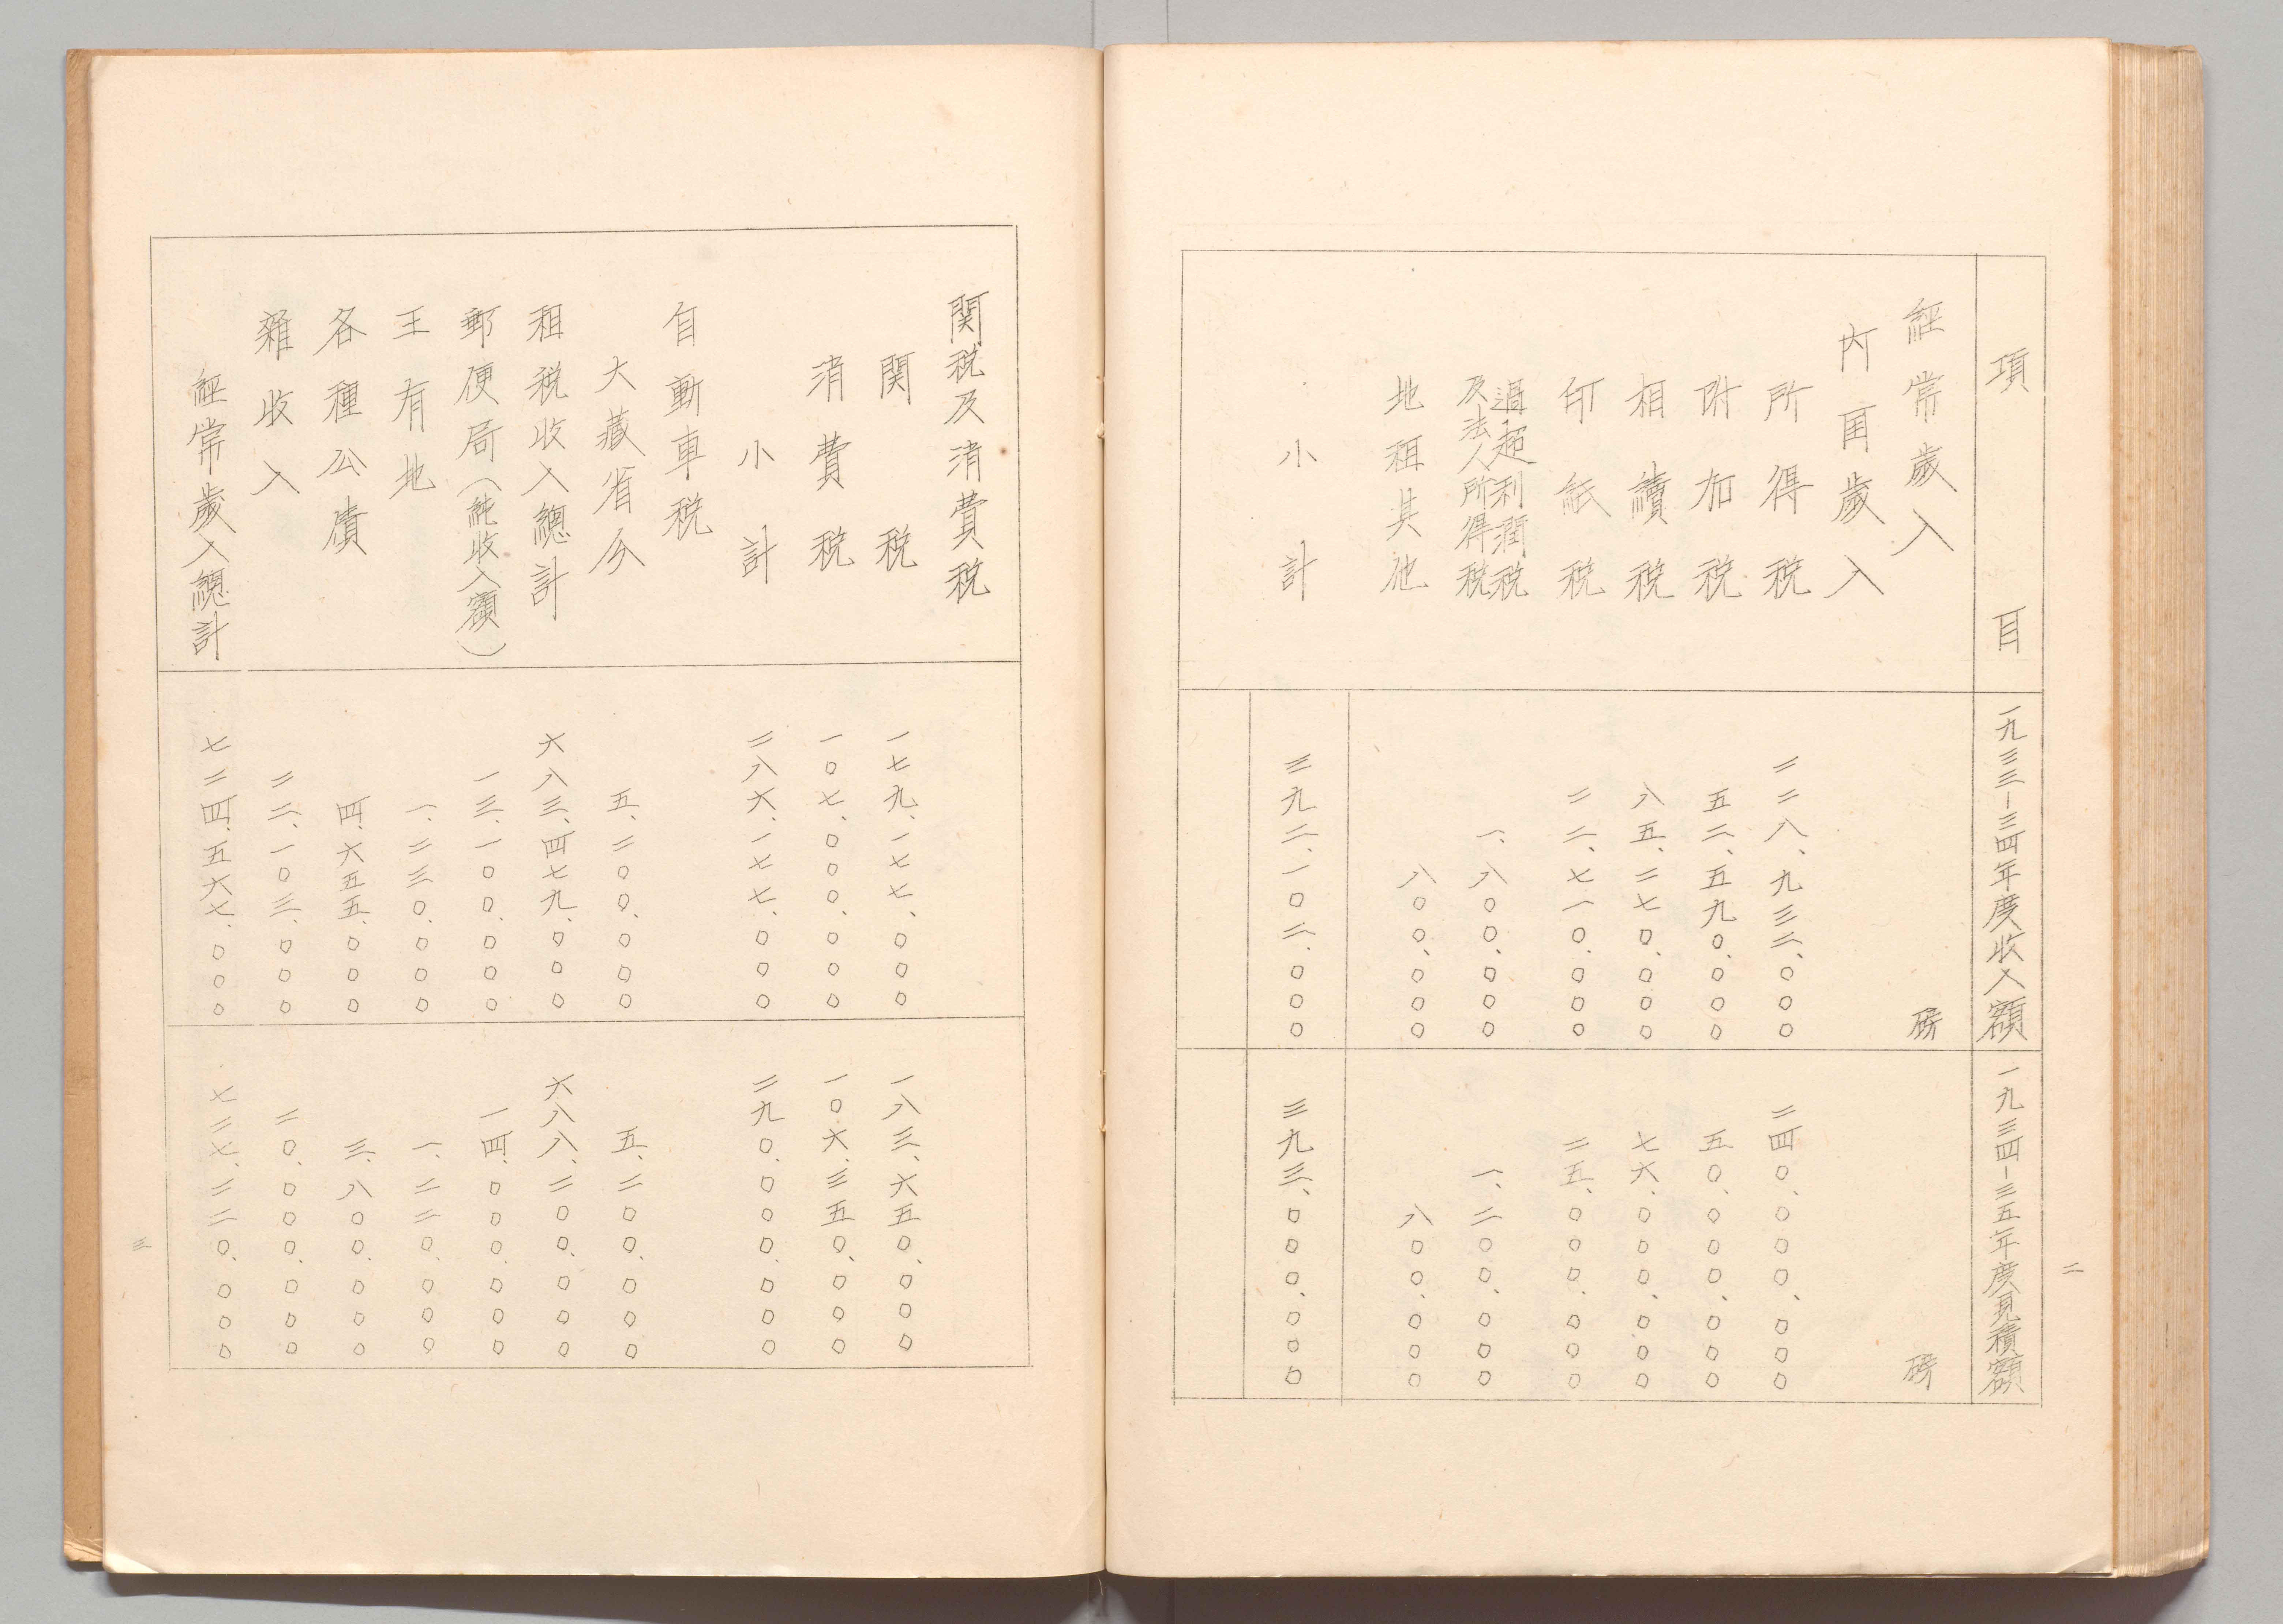 項目 一九三三-三四年度收入額 一九三四-三五年度見積額
經常歲入 磅 磅
内国歲入
所得税 二二八、九三二、〇〇〇 二四〇、〇〇〇、〇〇〇
附加税 五二、五九〇、〇〇〇 五〇、〇〇〇、〇〇〇
相續税 八五、二七〇、〇〇〇 七六、〇〇〇、〇〇〇
印紙税 二二、七一〇、〇〇〇 二五、〇〇〇、〇〇〇
過超利潤税
及法人所得税 一、八〇〇、〇〇〇 一、二〇〇、〇〇〇
地租其他 八〇〇、〇〇〇 八〇〇、〇〇〇
小計 三九二、一〇二、〇〇〇 三九三、〇〇〇、〇〇〇
二
関税及消費税
関税 一七九、一七七、〇〇〇 一八三、六五〇、〇〇〇
消費税 一〇七、〇〇〇、〇〇〇 一〇六、三五〇、〇〇〇
小計 二八六、一七七、〇〇〇 二九〇、〇〇〇、〇〇〇
自動車税
大藏省分 五、二〇〇、〇〇〇 五、二〇〇、〇〇〇
租税收入總計 六八三、四七九、〇〇〇 六八八、二〇〇、〇〇〇
郵便局(純收入額) 一三、一〇〇、〇〇〇 一四、〇〇〇、〇〇〇
王有地 一、二三〇、〇〇〇 一、二二〇、〇〇〇
各種公債 四、六五五、〇〇〇 三、八〇〇、〇〇〇
雜收入 二二、一〇三、〇〇〇 二〇、〇〇〇、〇〇〇
經常歲入總計 七二四、五六七、〇〇〇 七二七、二二〇、〇〇〇
三